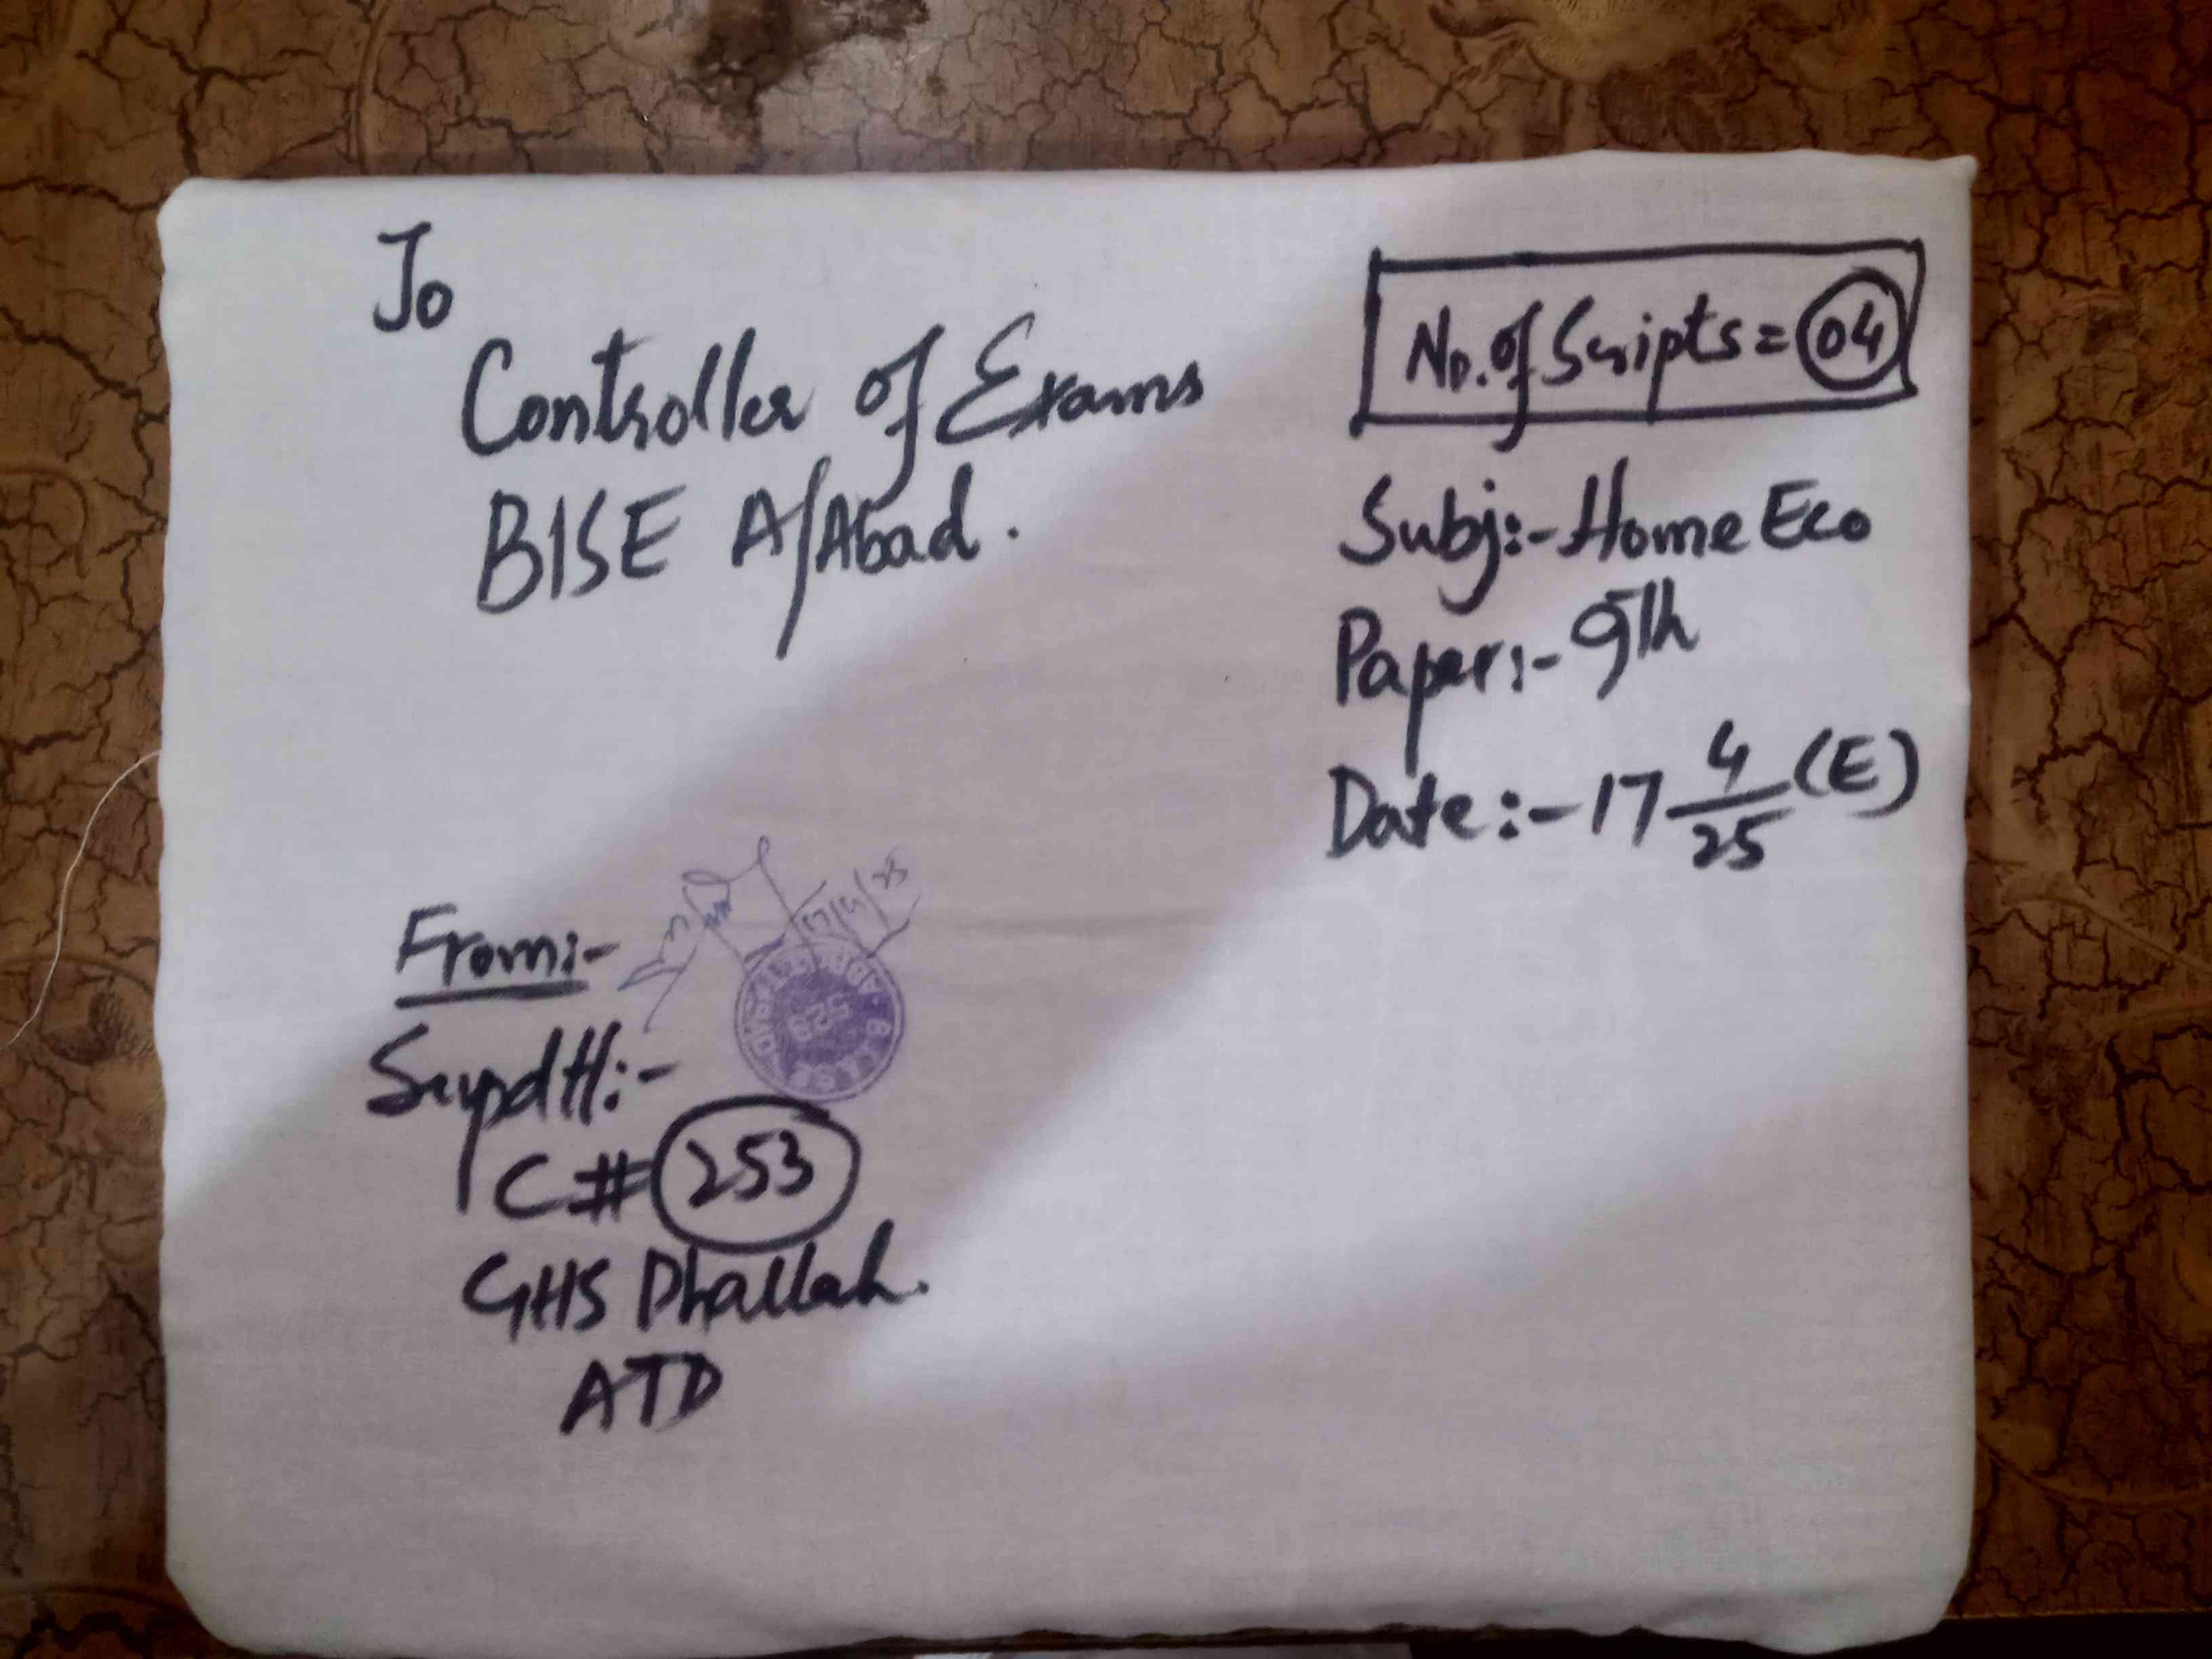 To
Controller of Exams
BISE A/Abad.
No. of Scripts = 04
Subj:- Home Eco
Paper:- 9th
Date:- 17 4/25 (E)
17/4/25
From:-
Supdtt:-
C# 253
GHS Dhallah.
ATD